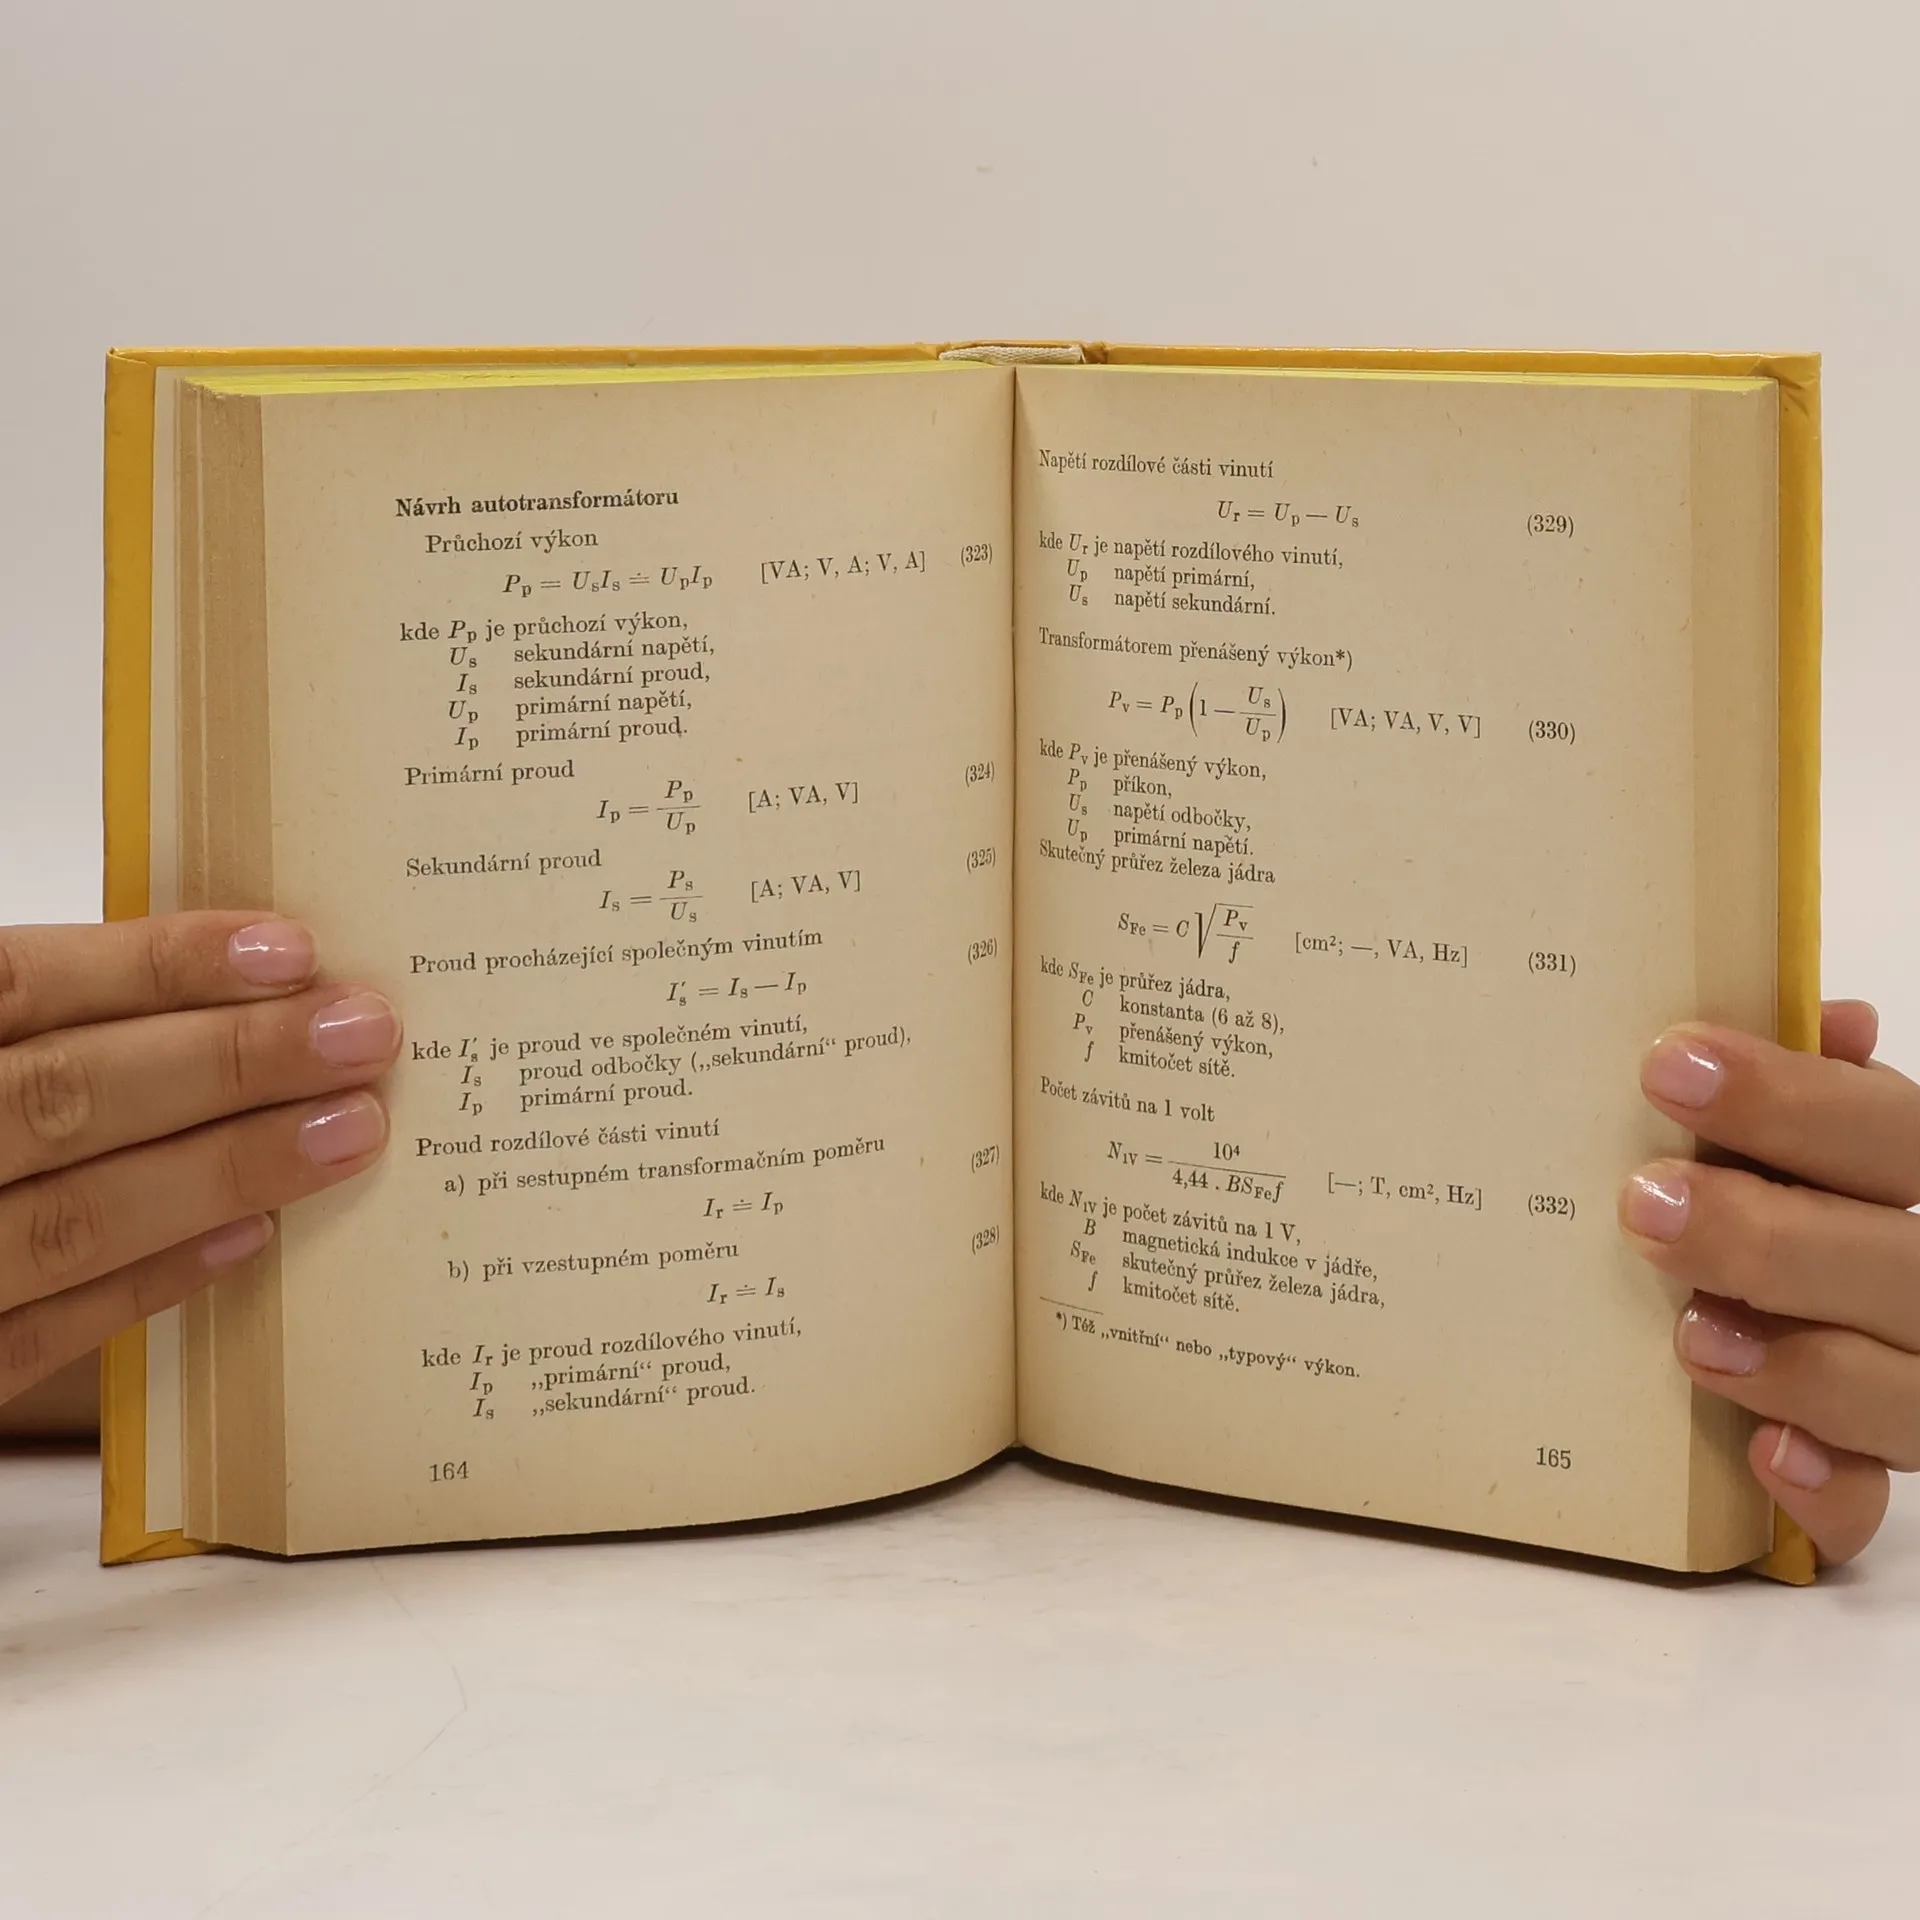 Návrh autotransformátoru
Průchozí výkon
P_p = U_sI_s ≐ U_pI_p [VA; V, A; V, A] (323)
kde P_p je průchozí výkon,
U_s sekundární napětí,
I_s sekundární proud,
U_p primární napětí,
I_p primární proud.
Primární proud
I_p = P_p / U_p [A; VA, V] (324)
Sekundární proud
I_s = P_s / U_s [A; VA, V] (325)
Proud procházející společným vinutím
I′_s = I_s — I_p (326)
kde I′_s je proud ve společném vinutí,
I_s proud odbočky („sekundární“ proud),
I_p primární proud.
Proud rozdílové části vinutí
a) při sestupném transformačním poměru
I_r ≐ I_p (327)
b) při vzestupném poměru
I_r ≐ I_s (328)
kde I_r je proud rozdílového vinutí,
I_p „primární“ proud,
I_s „sekundární“ proud.
164
Napětí rozdílové části vinutí
U_r = U_p — U_s (329)
kde U_r je napětí rozdílového vinutí,
U_p napětí primární,
U_s napětí sekundární.
Transformátorem přenášený výkon*)
P_v = P_p (1 — U_s / U_p) [VA; VA, V, V] (330)
kde P_v je přenášený výkon,
P_p příkon,
U_s napětí odbočky,
U_p primární napětí.
Skutečný průřez železa jádra
S_Fe = C √(P_v / f) [cm²; —, VA, Hz] (331)
kde S_Fe je průřez jádra,
C konstanta (6 až 8),
P_v přenášený výkon,
f kmitočet sítě.
Počet závitů na 1 volt
N_1V = 10⁴ / (4,44 . BS_Fe f) [—; T, cm², Hz] (332)
kde N_1V je počet závitů na 1 V,
B magnetická indukce v jádře,
S_Fe skutečný průřez železa jádra,
f kmitočet sítě.
*) Též „vnitřní“ nebo „typový“ výkon.
165